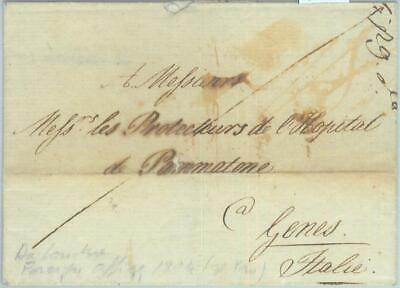 A Messieurs
Mess.rs les Protecteurs de l'Hopital
de Pammatone
a
Genes.
Italie.
Foreign Office 18